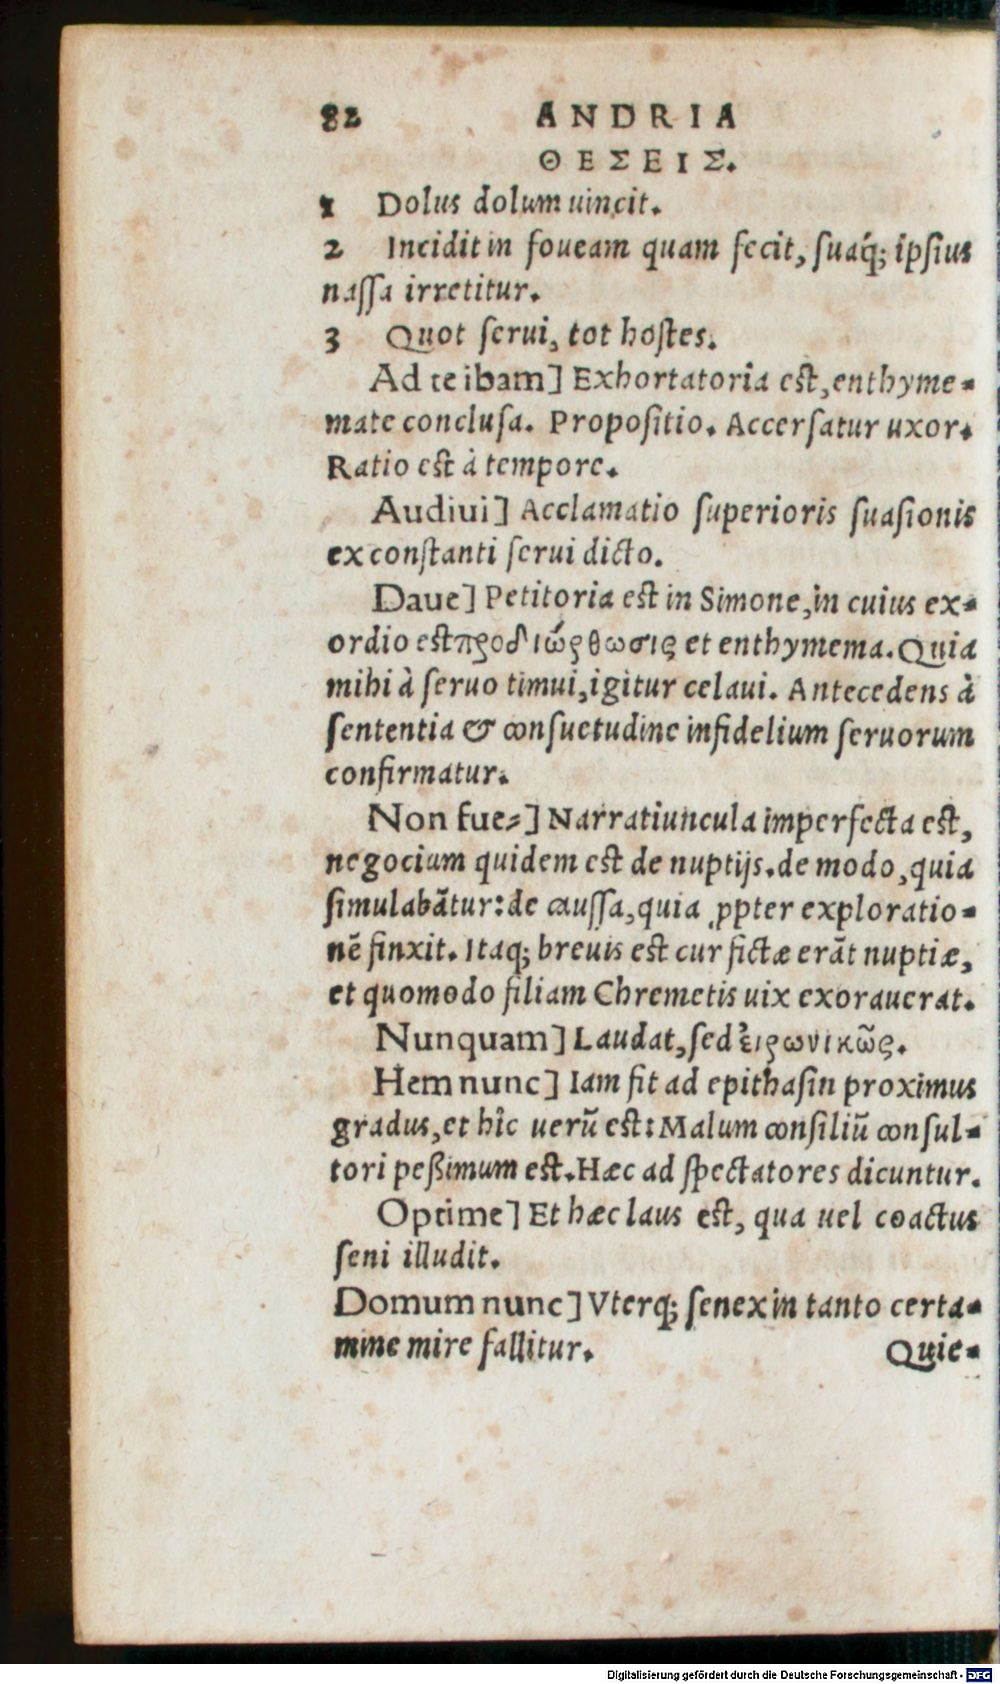 82 ANDRIA
ΘΕΣΕΙΣ.
1 Dolus dolum uincit.
2 Incidit in foueam quam fecit, ſuaq́; ipſius
naſſa irretitur.
3 Quot ſerui, tot hoſtes.
Ad te ibam] Exhortatoria eſt, enthyme-
mate concluſa. Propoſitio. Accerſatur uxor.
Ratio eſt à tempore.
Audiui] Acclamatio ſuperioris ſuaſionis
ex conſtanti ſerui dicto.
Daue] Petitoria eſt in Simone, in cuius ex-
ordio eſt προδιώρθωσις et enthymema. Quia
mihi à ſeruo timui, igitur celaui. Antecedens à
ſententia & conſuetudine infidelium ſeruorum
confirmatur.
Non fue-] Narratiuncula imperfecta eſt,
negocium quidem eſt de nuptijs. de modo, quia
ſimulabãtur: de cauſſa, quia ꝓpter exploratio-
nẽ finxit. Itaq; breuis eſt cur fictæ erãt nuptiæ,
et quomodo filiam Chremetis uix exorauerat.
Nunquam] Laudat, ſed εἰρωνικῶς.
Hem nunc] Iam fit ad epithaſin proximus
gradus, et hîc uerũ eſt: Malum conſiliũ conſul-
tori peßimum eſt. Hæc ad ſpectatores dicuntur.
Optime] Et hæc laus eſt, qua uel coactus
ſeni illudit.
Domum nunc] Vterq; ſenex in tanto certa-
mine mire fallitur. Quie-
Digitalisierung gefördert durch die Deutsche Forschungsgemeinschaft - DFG